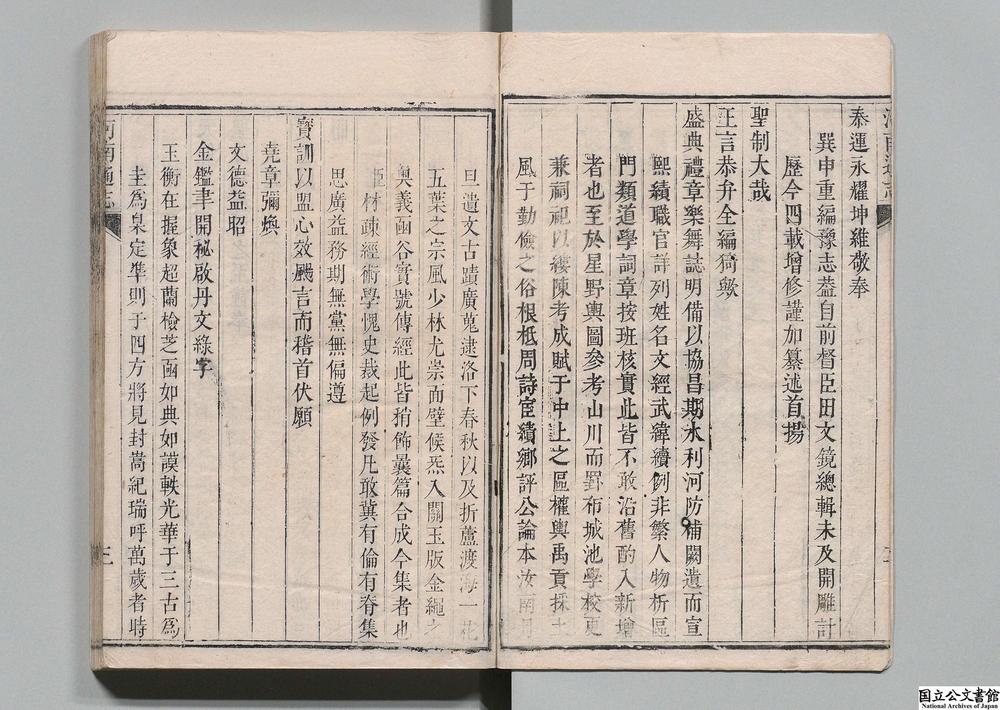 泰運永耀坤維敬奉
巽申重編豫志葢自前督臣田文鏡總輯未及開雕計
歷今四載增修謹加纂述首揚
聖制大哉
王言恭弁全編猗歟
盛典禮章樂舞誌明備以協昌期水利河防補闕遺而宣
熙績職官詳列姓名文經武緯續例非繁人物析區
門類道學詞章按班核實此皆不敢沿舊酌入新增
者也至於星野輿圖參考山川而罫布城池學校更
兼祠祀以縷陳考成賦于中土之區權輿禹貢採土
風于勤儉之俗根柢周詩宦績鄉評公論本汝南月
旦遺文古蹟廣蒐逮洛下春秋以及折蘆渡海一花
五葉之宗風少林尤崇面壁候炁入關玉版金繩之
奧義函谷實號傳經此皆稍飾曩篇合成今集者也
材疎經術學愧史裁起例發凡敢冀有倫有脊集
思廣益務期無黨無偏遵
寶訓以盟心效颺言而稽首伏願
堯章彌煥
文德益昭
金鑑聿開秘啟丹文綠字
玉衡在握象超蘭檢芝函如典如謨軼光華于三古爲
圭爲臬定準則于四方將見封嵩紀瑞呼萬歲者時
河南通志
三
国立公文書館
National Archives of Japan